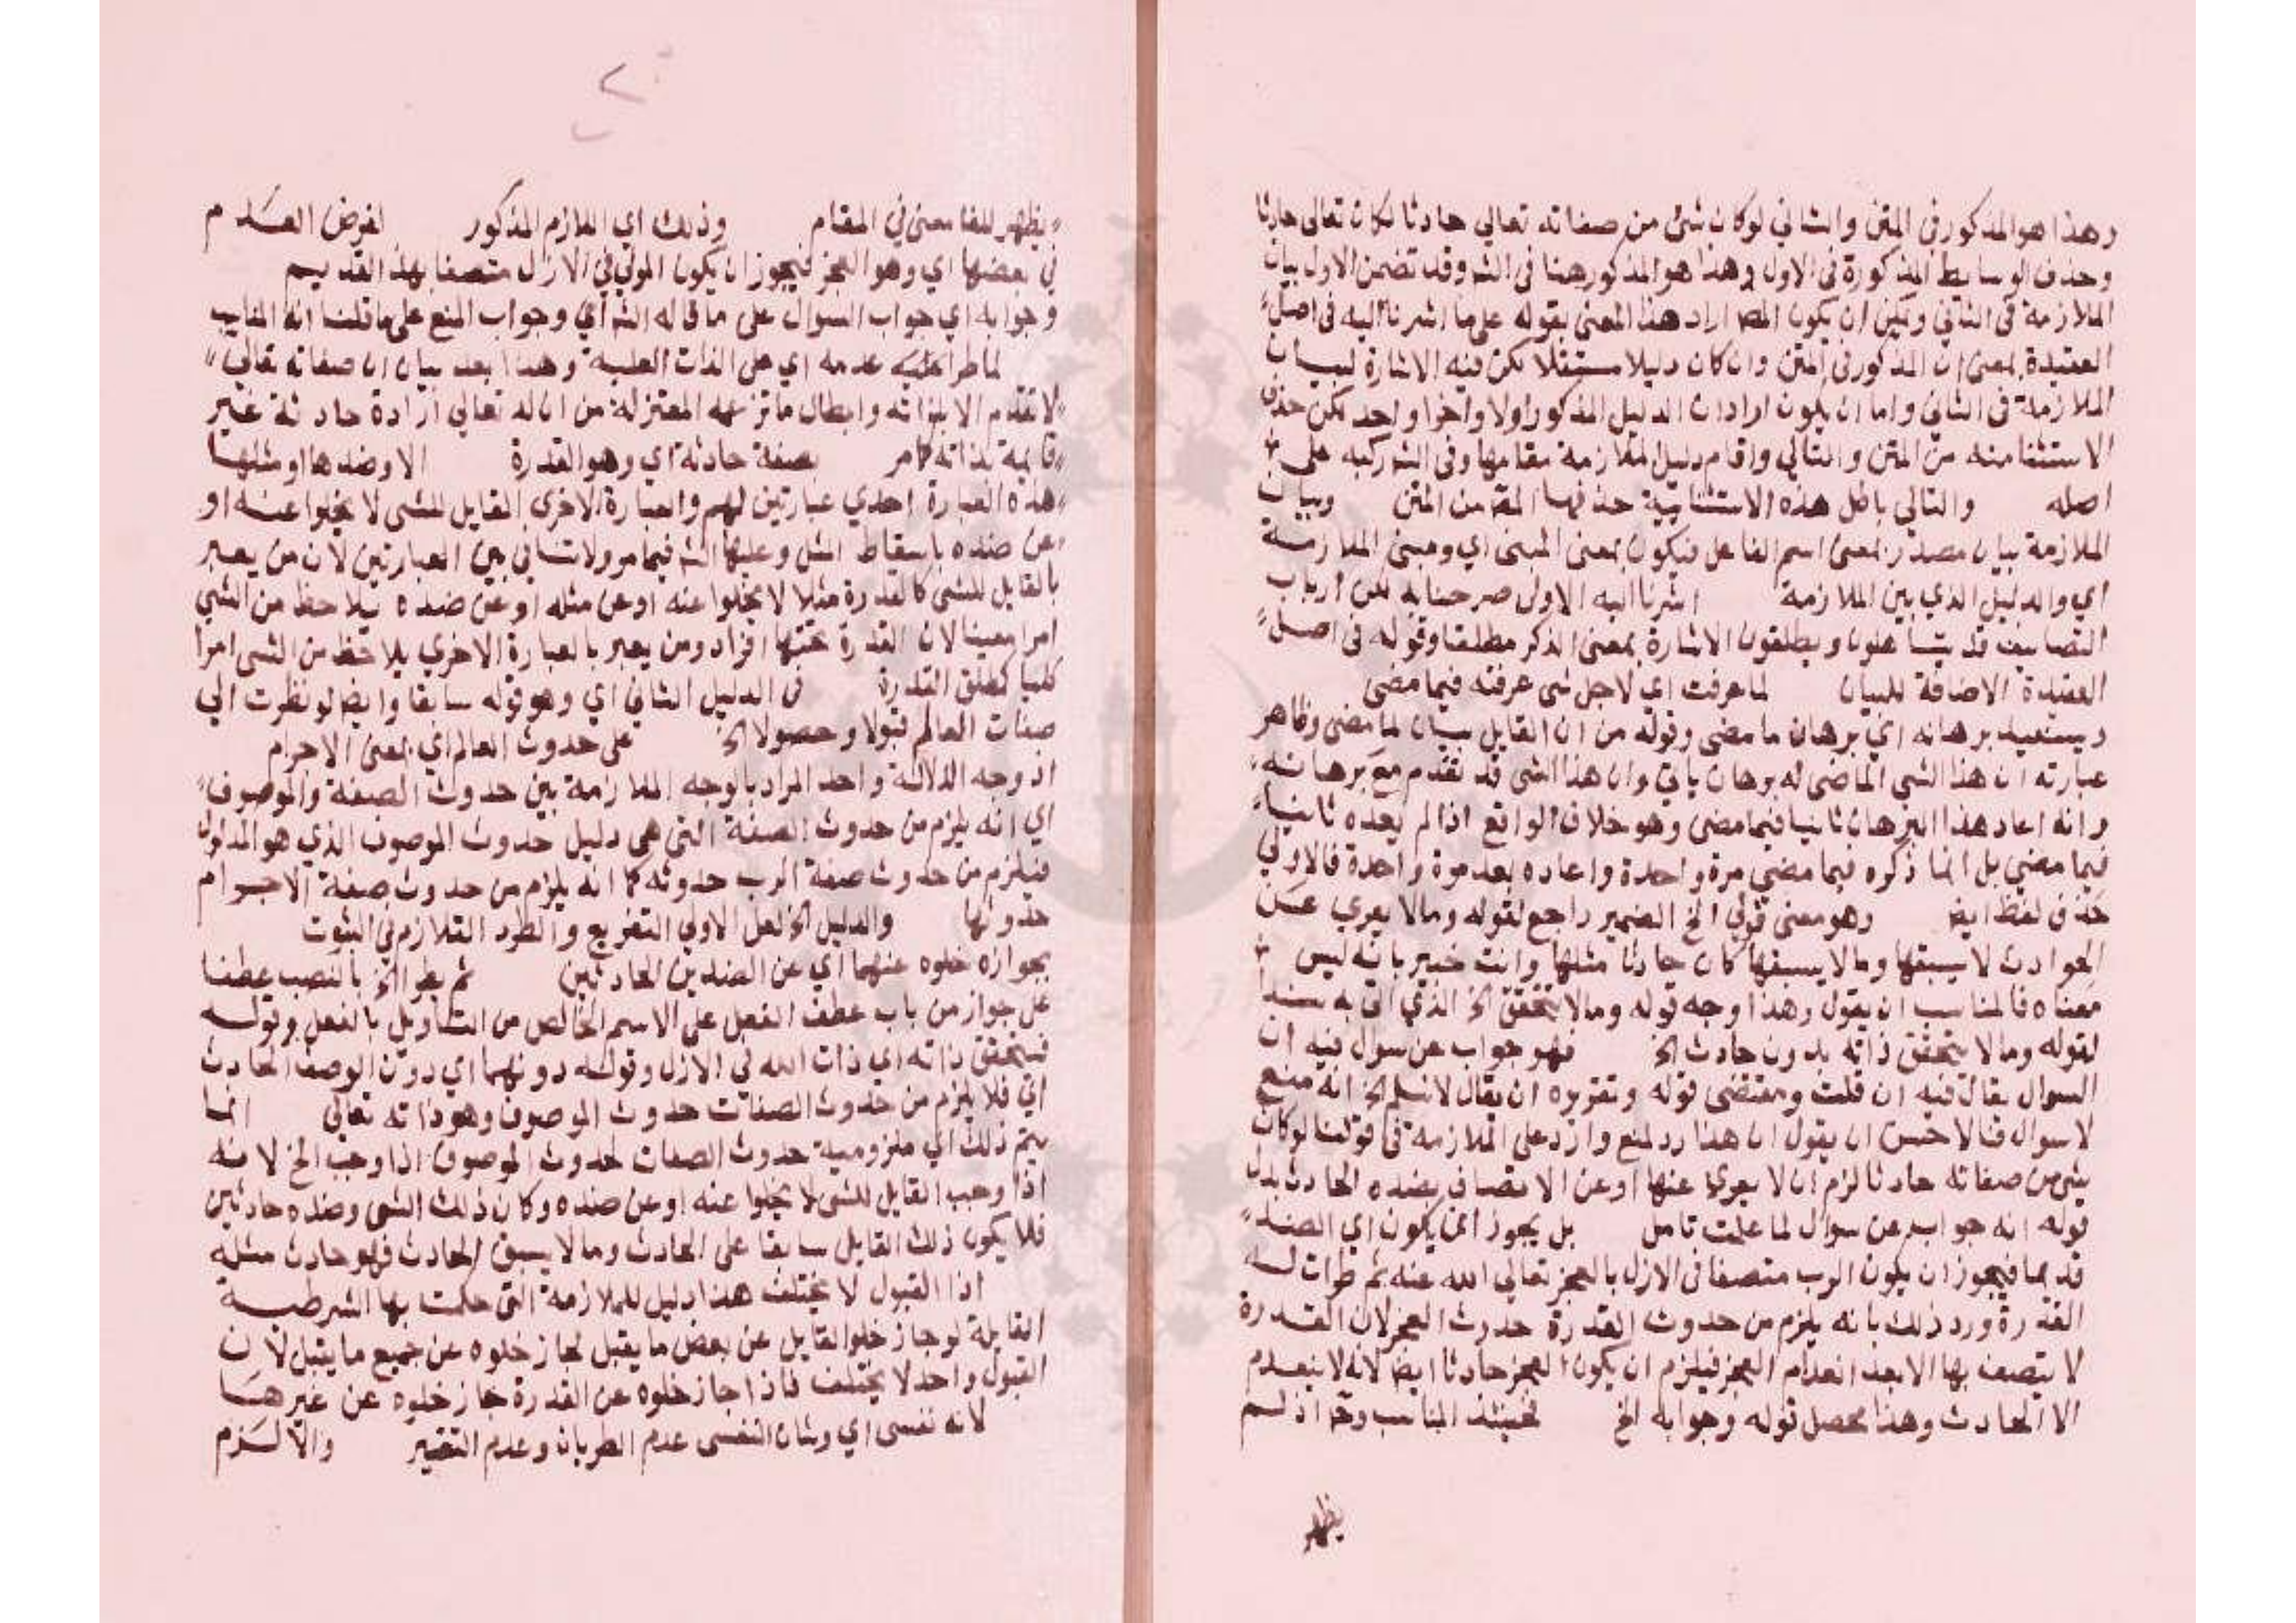 وهذا هو المذكور في المتن والثاني لو كان شئ من صفاته تعالي حادثا لكان تعالي حادثا
وحذف الوسايط المذكورة في الاول وهذا هو المذكور هنا في الشـ وقد تضمن الاول بيان
الملازمة في الثاني ويمكن ان يكون المصـ اراد هذا المعني بقوله على ما اشرنا اليه في اصل
العقيدة بمعنى ان المذكور في المتن وان كان دليلا مستقلا لكن فيه الاشارة لبيان
الملازمة في الثاني واما ان يكون اراد ان الدليل المذكور اولا واخرا واحد لكن حذف
الاستثنا منه من المتن والتالي واقام دليل الملازمة مقامها وفي الشـ ركبه على
اصله والتالي باطل هذه الاستثنايية حذفها المصـ من المتن وبيان
الملازمة بيان مصدر بمعنى اسم الفاعل فيكون بمعنى المبين اي ومبين الملازمة
اي والدليل الذي بين الملازمة اشرنا اليه الاولى صرحنا به لكن ارباب
التصانيف قد يتساهلون ويطلقون الاشارة بمعنى الذكر مطلقا وقوله في اصل
العقيدة الاضافة للبيان لما عرفت اي لاجل شي عرفته فيما مضى
ويستعيد برهانه اي برهان ما مضى وقوله من ان القابل بيان لما مضى وظاهر
عبارته ان هذا الشي الماضي له برهان ياتي وان هذا الشي قد تقدم مع برهانه
وانه اعاد هذا البرهان ثانيا فيما مضى وهو خلاف الواقع اذ لم يعده ثانيا
فيما مضي بل انما ذكره فيما مضي مرة واحدة واعاده بعد مرة واحدة فالاولي
حذف لفظ ايضـ وهو معنى قولي الخ الضمير راجع لقوله وما لا يعري عن
الحوادث لا يسبقها وما لا يسبقها كان حادثا مثلها وانت خبير بانه ليس
معناه فالمناسب ان يقول وهذا وجه قوله وما لا يتحقق الخ الذي اتي به سندا
لقوله وما لا يتحقق ذاته بدون حادث الخ فهو جواب عن سوال فيه ان
السوال يقال فيه ان قلت ومقتضى قوله وتقريره ان يقال لا نسلم الخ انه منع
لا سوال فالاحسن ان يقول ان هذا رد لمنع وارد على الملازمة في قولنا لو كان
شي من صفاته حادثا لزم ان لا يعري عنها او عن الاتصاف بضده الحادث بدل
قوله انه جواب عن سوال لما علمت تامل بل يجوز ان يكون اي الضد
قديما فيجوز ان يكون الرب متصفا في الازل بالعجز تعالي الله عنه ثم طرات له
القدرة ورد ذلك بانه يلزم من حدوث القدرة حدوث العجز لان القدرة
لا يتصف بها الا بعد انعدام العجز فيلزم ان يكون العجز حادثا ايضـ لانه لا ينعدم
الا الحادث وهذا محصل قوله وجوابه الخ فحينئذ المناسب وح اذ لم
يظهر
يظهر للفا معنى في المقام وذلك اي اللازم المذكور لفرض العدم
في بعضها اي وهو العجز فيجوز ان يكون المولي في الازل متصفا بهذا القديم
وجوابه اي جواب السوال على ما قاله الشـ اي وجواب المنع على ما قلنا انه المناسب
لما طرا عليه عدمه اي على الذات العلية وهذا بعد بيان ان صفاته تعالي
لا تقدم الا بذاته وابطال ما تزعمه المعتزلة من ان له تعالي ارادة حادثة غير
قايمة بذاته كامر بصفة حادثة اي وهو القدرة الا وضدها او مثلها
هذه العبارة احدي عبارتين لهم والعبارة الاخري القابل للشي لا يخلوا عنه او
عن ضده باسقاط المثل وعليها الشـ فيما مر ولا تنافي بين العبارتين لان من يعبر
بالقابل للشي كالقدرة مثلا لا يخلوا عنه او عن مثله او عن ضده يلاحظ من الشي
امرا معينا لان القدرة تحتها افراد ومن يعبر بالعبارة الاخري يلاحظ من الشي امرا
كليا كمطلق القدرة في الدليل الثاني اي وهو قوله سابقا وايضـ لو نظرت الي
صفات العالم قبولا وحصولا الخ على حدوث العالم اي بمعنى الاجرام
اذ وجه الدلالة واحد المراد بالوجه الملازمة بين حدوث الصفة والموصوف
اي انه يلزم من حدوث الصفة التي هي دليل حدوث الموصوف الذي هو المدلول
فيلزم من حدوث صفة الرب حدوثه كما انه يلزم من حدوث صفة الاجرام
حدوثها والدليل الخ لعل الاولي التفريع والطرد التلازم في الثبوت
بجوازه خلوه عنهما اي عن الضدين الحادثين ثم يطرا الخ بالنصب عطفا
على جواز من باب عطف الفعل على الاسم الخالص من التاويل بالفعل وقوله
فيتحقق ذاته اي ذات الله في الازل وقوله دونهما اي دون الوصف الحادث
اي فلا يلزم من حدوث الصفات حدوث الموصوف وهو ذاته تعالي انما
يتم ذلك اي ملزومية حدوث الصفات لحدوث الموصوف اذا وجب الخ لانه
اذا وجب القابل للشي لا يخلوا عنه او عن ضده وكان ذلك الشي وضده حادثين
فلا يكون ذلك القابل سابقا على الحادث وما لا يسبق الحادث فهو حادث مثله
اذا القبول لا يختلف هذا دليل للملازمة التي حكمت بها الشرطية
القايلة لو جاز خلو القابل عن بعض ما يقبل لجاز خلوه عن جميع ما يقبل لان
القبول واحد لا يختلف فاذا جاز خلوه عن القدرة جاز خلوه عن غيرها
لانه نفسى اي وشان النفسى عدم الطريان وعدم التغير والا لزم